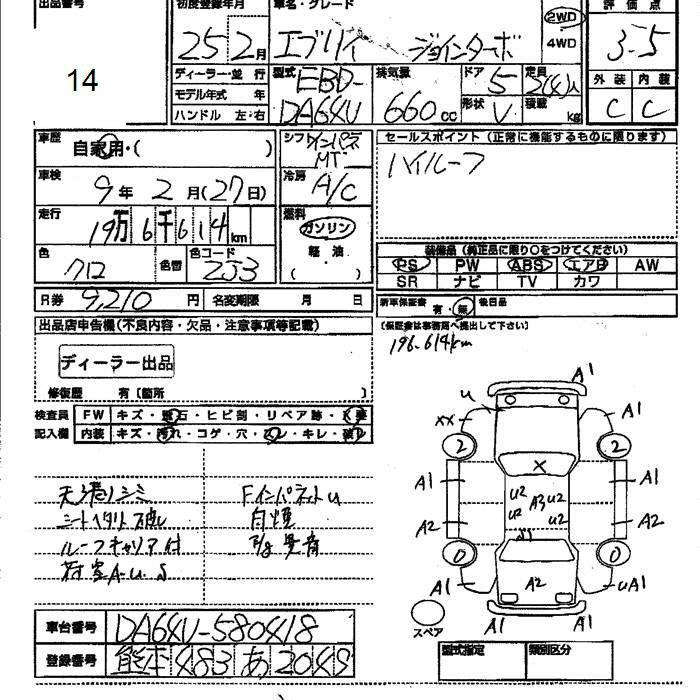 出品番号 初度登録年月 車名・グレード 評価点
14
25 2月 エブリイ ジョインターボ 2WD 4WD 3.5
ディーラー・並行 型式 排気量 ドア 定員 外装 内装
モデル年式 年 EBD- DA64V 660cc 5 2(4)人 C C
ハンドル 左・右 形状 V 積載 kg
車歴 自家用・( ) シフト インパネ MT セールスポイント(正常に機能するものに限ります)
車検 9年 2月(27日) 冷房 A/C ハイルーフ
走行 19万6千614km 燃料 ガソリン・軽油・( )
色 クロ 色替 色コード ZJ3
装備品(純正品に限り○をつけてください)
PS PW ABS エアB AW
SR ナビ TV カワ
R券 9,210円 名変期限 月 日 新車保証書 有・無 後日品
(保証書は事務局へ提出して下さい)
出品店申告欄(不良内容・欠品・注意事項等記載) 196.614km
ディーラー出品
修復歴 有〔箇所 〕
検査員 FW キズ・飛石・ヒビ割・リペア跡・X要
記入欄 内装 キズ・汚れ・コゲ・穴・ズレ・キレ・破れ
天張りシミ Fインパネットu
シートヘタリ
ルーフキャリア付
荷室A・u・S
A1
u
A1
xx
2 2
x
A1 A1
u2 A3 u2
u2 u2
A2 A2
0 0
A1 A2 uA1
A1 A1
スペア
車台番号 DA64V-580418
登録番号 熊本 483 あ 2048
型式指定 類別区分